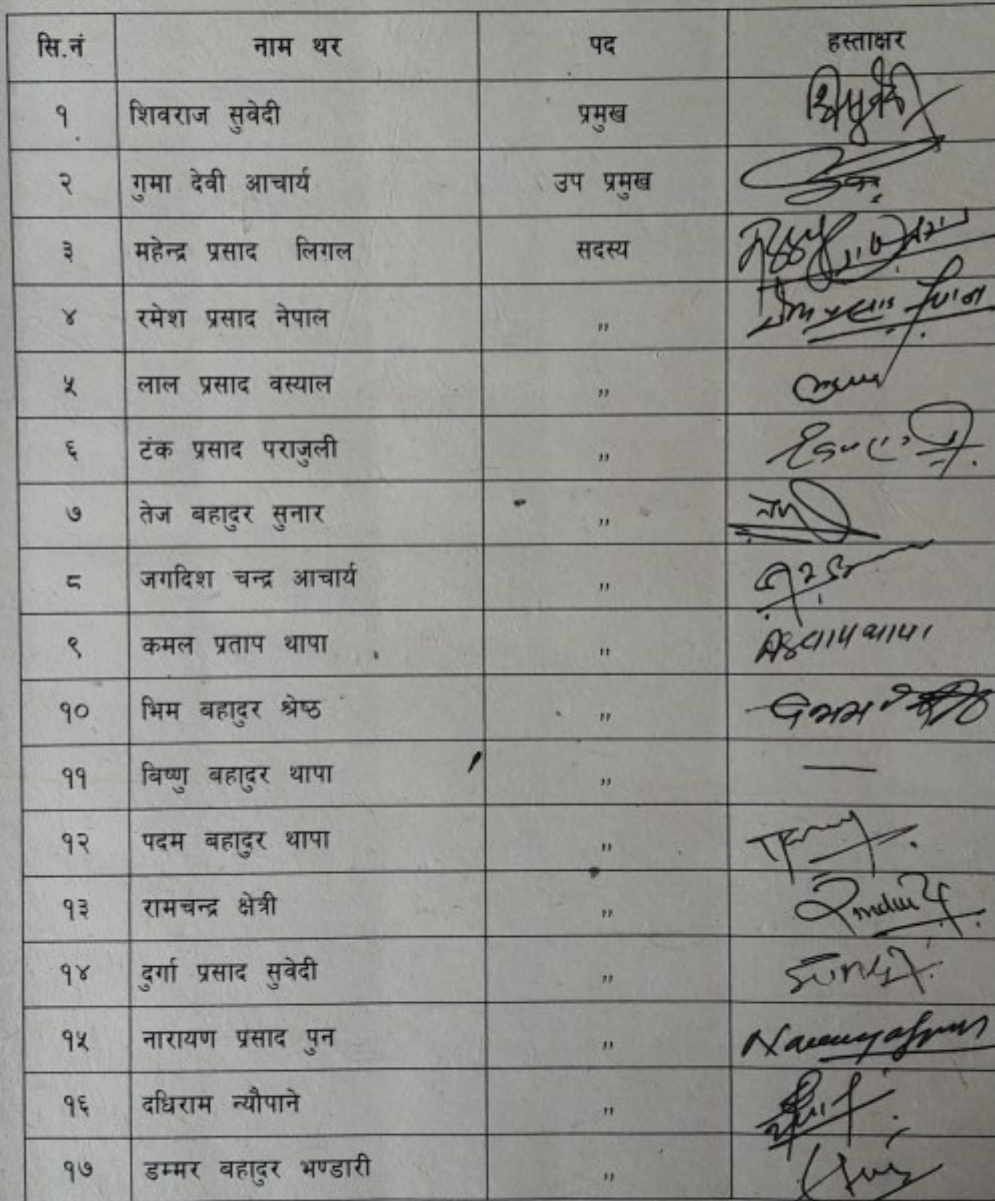 सि.नं नाम थर पद हस्ताक्षर
१ शिवराज सुवेदी प्रमुख
२ गुमा देवी आचार्य उप प्रमुख
३ महेन्द्र प्रसाद लिगल सदस्य
४ रमेश प्रसाद नेपाल ,,
५ लाल प्रसाद वस्याल ,,
६ टंक प्रसाद पराजुली ,,
७ तेज बहादुर सुनार ,,
८ जगदिश चन्द्र आचार्य ,,
९ कमल प्रताप थापा ,,
१० भिम बहादुर श्रेष्ठ ,,
११ बिष्णु बहादुर थापा ,, —
१२ पदम बहादुर थापा ,,
१३ रामचन्द्र क्षेत्री ,,
१४ दुर्गा प्रसाद सुवेदी ,,
१५ नारायण प्रसाद पुन ,,
१६ दधिराम न्यौपाने ,,
१७ डम्मर बहादुर भण्डारी ,,